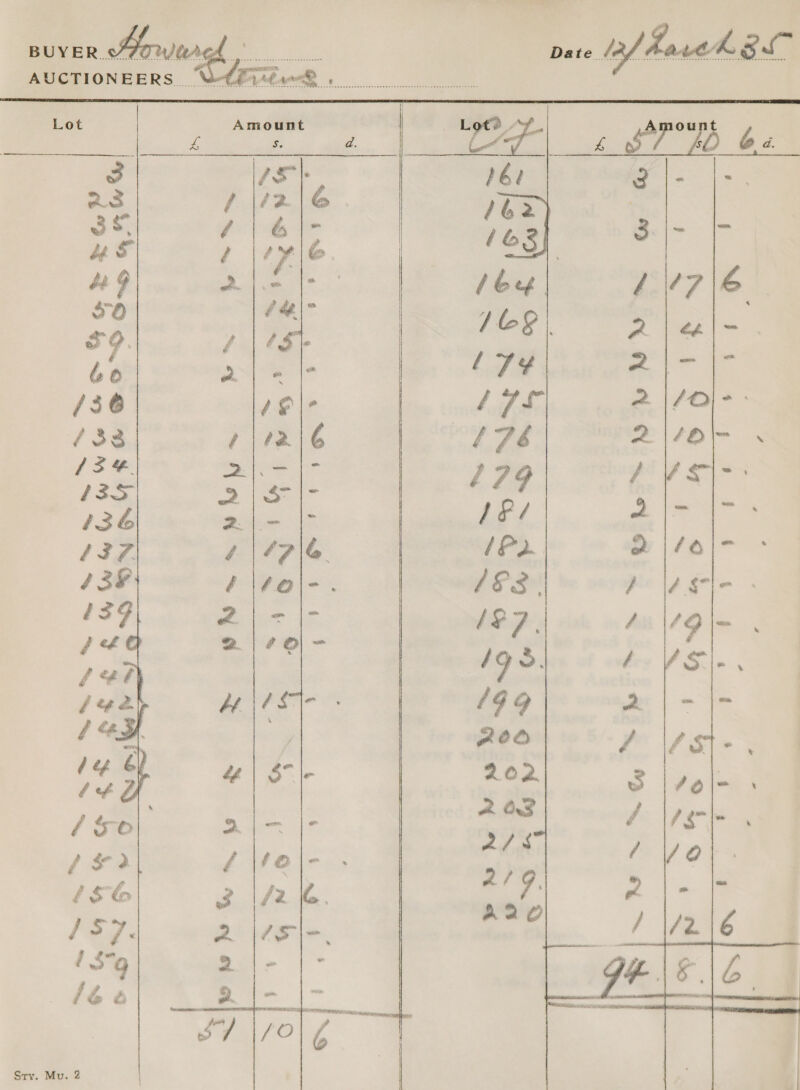 BUYER Howard
AUCTIONEERS Stevens.
Date 12/ March 35
Lot Amount
£ s. d.
3 15 -
23 1 12 6
35. 1 6 -
45 1 17 6.
49 2 - -
50 14 -
59. 1 15 -
60 2 - -
130 18 -
133 1 12 6
134. 2 - -
135 2 5 -
136 2 - -
137 1 17 6
138 1 10 -
139 2 - -
140 2 10 -
141
142 4 15 -
143
146 4 5 -
147
150 2 - -
152 1 10 -
156 3 12 6.
157. 2 15 -
159 2 - -
160 2 - -
51 10 6
Lot Amount
£ 51 s. 10 6 d.
161 3 - -
162
163 3 - -
164 1 17 6
168 2 4 -
174 2 - -
175 2 10 -
176 2 10 -
179 1 15 -
181 2 - -
182 2 10 -
183. 1 15 -
187. 1 19 -
193. 1 15 -
199 2 - -
200 1 15 -
202 3 10 -
203 1 15 -
215 1 10
219. 2 - -
220 1 12 6
94. 8. 6
Sty. Mu. 2